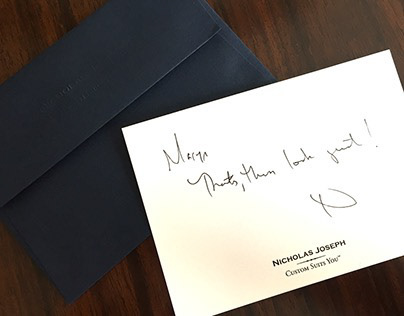 Thanks, these look great!
NICHOLAS JOSEPH
CUSTOM SUITS YOU™